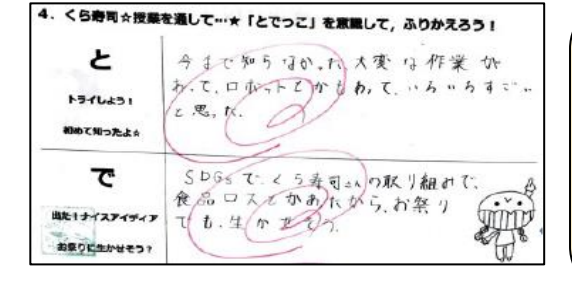 4．くら寿司☆授業を通して…★「とでっこ」を意識して，ふりかえろう！
と
トライしよう！
初めて知ったよ☆
今まで知らなかった大変な作業が
あって、ロボットとかもあって、いろいろすごい
と思った。
で
出た！ナイスアイディア
お祭りに生かせそう？
SDGsで、くら寿司さんの取り組みで、
食品ロスとかあったから、お祭り
でも、生かせそう。